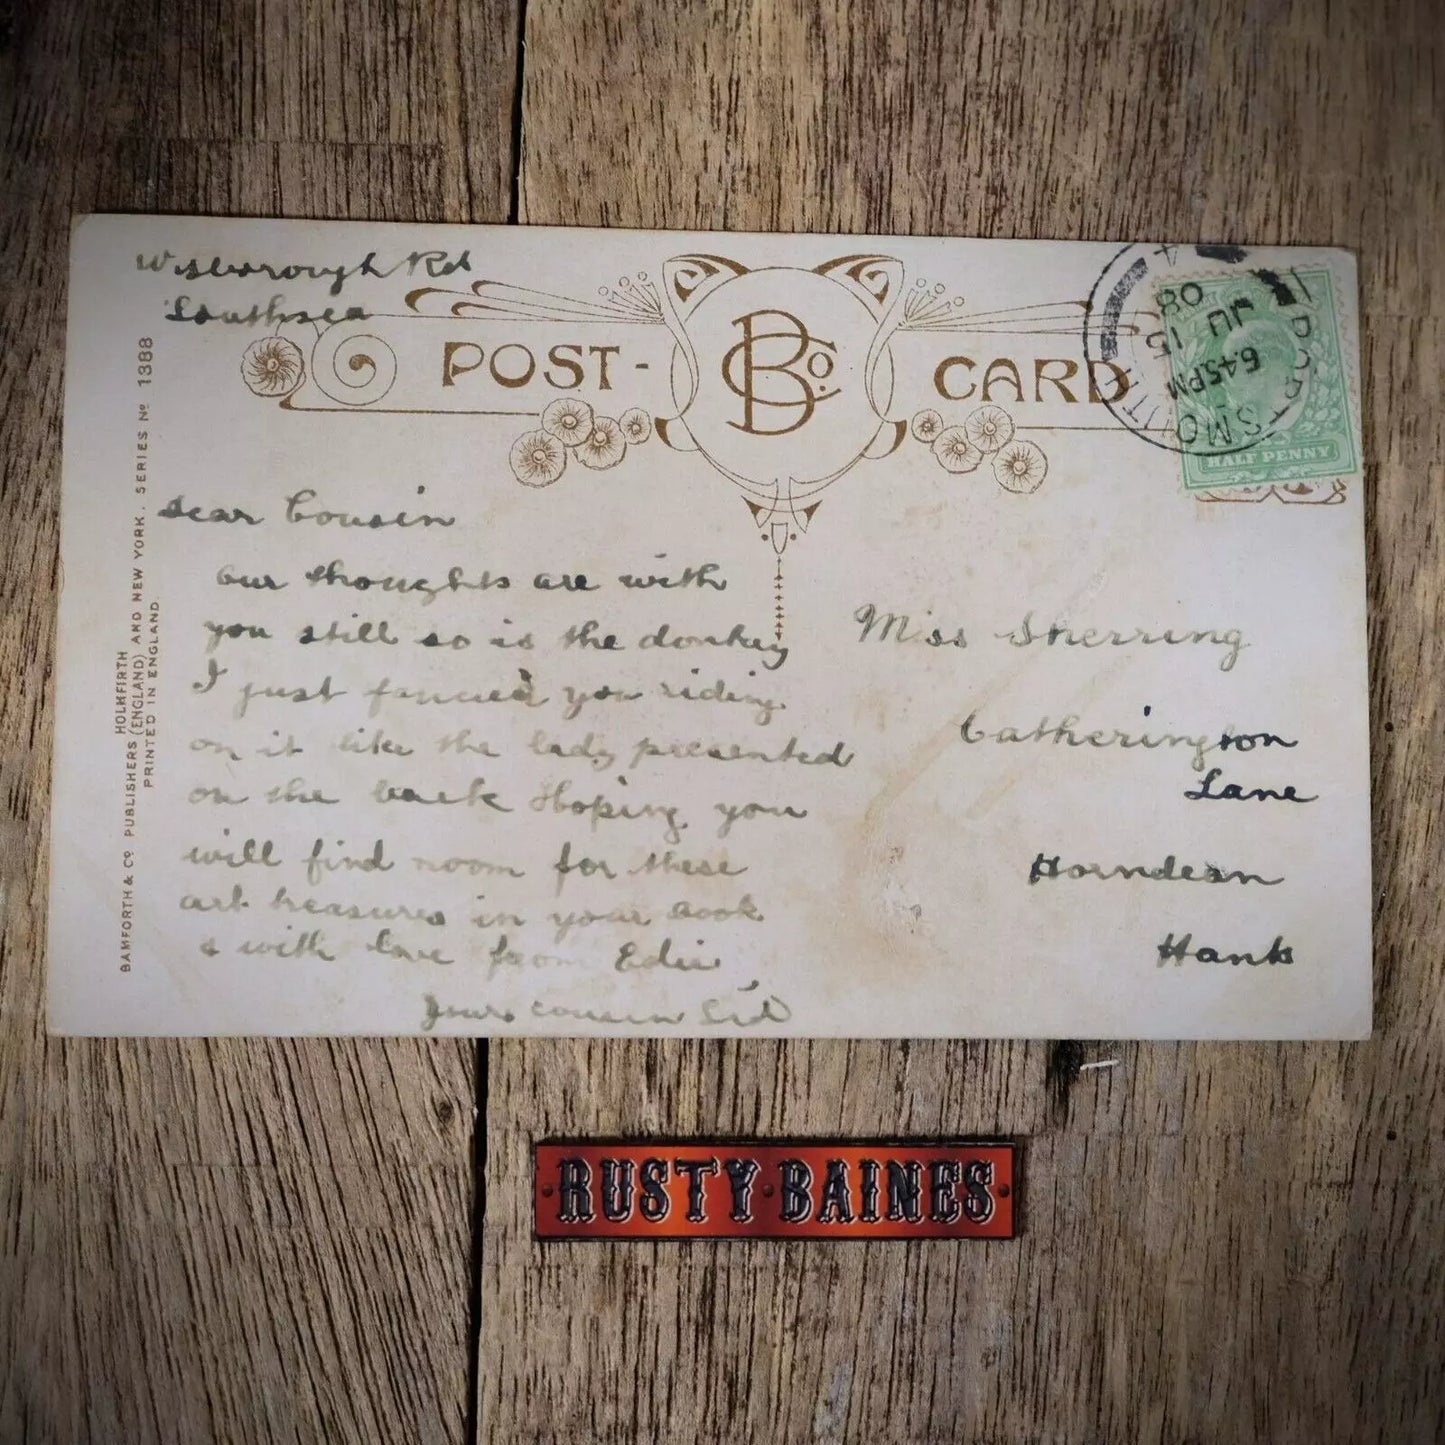 Wisborough Rd
Southsea
POST-CARD
BCo.
PORTSMOUTH
6.45 PM
JU 15
08
4
HALF PENNY
BAMFORTH & Co PUBLISHERS HOLMFIRTH (ENGLAND) AND NEW YORK. SERIES No 1388
PRINTED IN ENGLAND.
Dear Cousin
Our thoughts are with
you still so is the donkey
I just fancied you riding
on it like the lady presented
on the back Hoping you
will find room for these
art treasures in your book
& with love from Edie
Your cousin Sid
Miss Sherring
Catherington
Lane
Horndean
Hants
RUSTY·BAINES